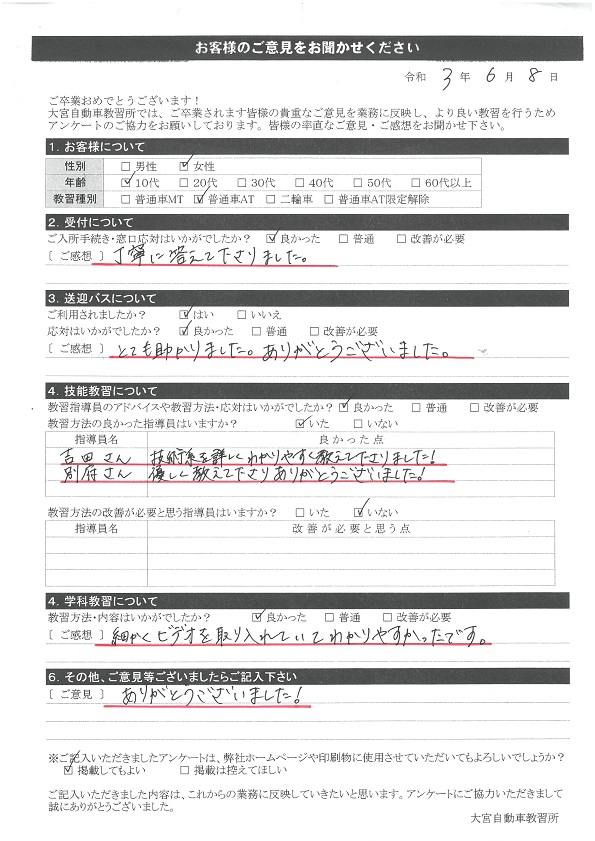 お客様のご意見をお聞かせください
令和 3 年 6 月 8 日
ご卒業おめでとうございます！
大宮自動車教習所では、ご卒業されます皆様の貴重なご意見を業務に反映し、より良い教習を行うため
アンケートのご協力をお願いしております。皆様の率直なご意見・ご感想をお聞かせ下さい。
1. お客様について
性別 □ 男性 ☑ 女性
年齢 ☑ 10代 □ 20代 □ 30代 □ 40代 □ 50代 □ 60代以上
教習種別 □ 普通車MT ☑ 普通車AT □ 二輪車 □ 普通車AT限定解除
2. 受付について
ご入所手続き・窓口応対はいかがでしたか？ ☑ 良かった □ 普通 □ 改善が必要
〔 ご感想 〕 丁寧に答えて下さりました。
3. 送迎バスについて
ご利用されましたか？ ☑ はい □ いいえ
応対はいかがでしたか？ ☑ 良かった □ 普通 □ 改善が必要
〔 ご感想 〕 とても助かりました。ありがとうございました。
4. 技能教習について
教習指導員のアドバイスや教習方法・応対はいかがでしたか？ ☑ 良かった □ 普通 □ 改善が必要
教習方法の良かった指導員はいますか？ ☑ いた □ いない
指導員名 良かった点
吉田さん 技術系を詳しくわかりやすく教えて下さりました！
別府さん 優しく教えて下さりありがとうございました！
教習方法の改善が必要と思う指導員はいますか？ □ いた ☑ いない
指導員名 改善が必要と思う点
4. 学科教習について
教習方法・内容はいかがでしたか？ ☑ 良かった □ 普通 □ 改善が必要
〔 ご感想 〕 細かくビデオを取り入れていてわかりやすかったです。
6. その他、ご意見等ございましたらご記入下さい
〔 ご意見 〕 ありがとうございました！
※ご記入いただきましたアンケートは、弊社ホームページや印刷物に使用させていただいてもよろしいでしょうか？
☑ 掲載してもよい □ 掲載は控えてほしい
ご記入いただきました内容は、これからの業務に反映していきたいと思います。アンケートにご協力いただきまして
誠にありがとうございました。
大宮自動車教習所